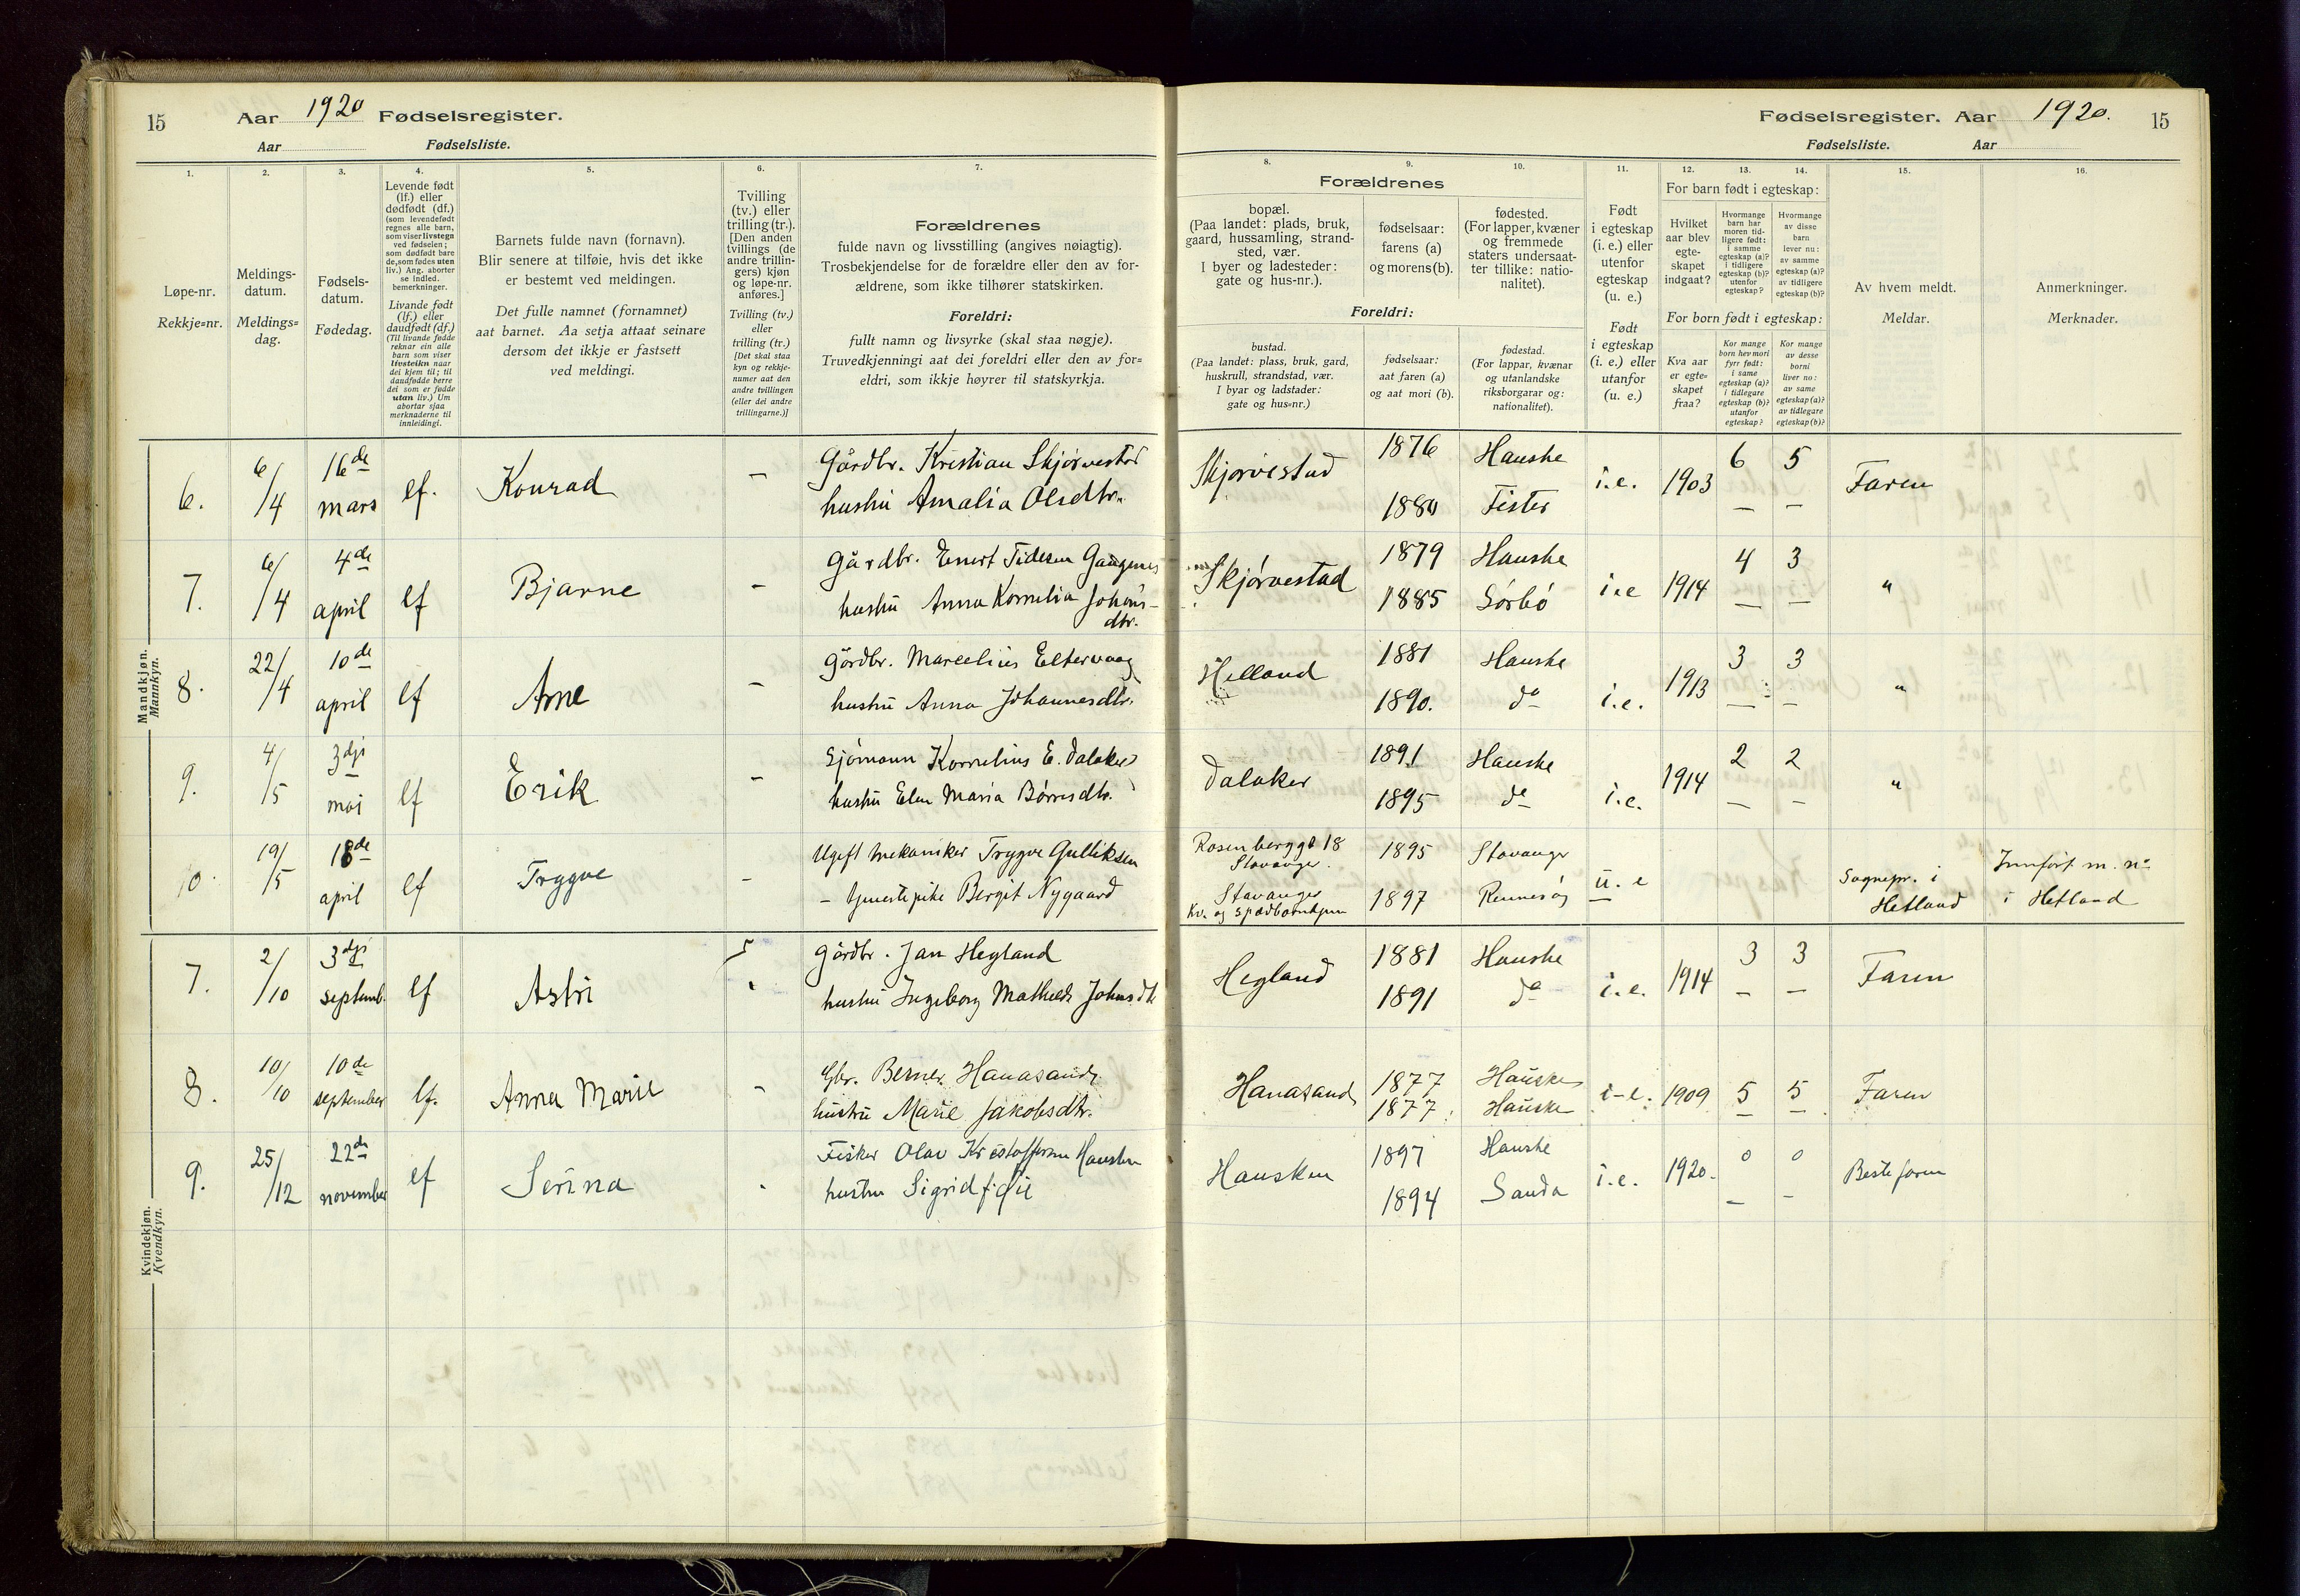 15
Aar 1920 Fødselsregister.
Aar Fødselsliste.
1.
2.
3.
4.
5.
6.
7.
Løpe-nr.
Rekkje-nr.
Meldings-
datum.
Meldings-
dag.
Fødsels-
datum.
Fødedag.
Levende født
(lf.) eller
dødfødt (df.)
(som levendefødt
regnes alle barn,
som viser livstegn
ved fødselen;
som dødfødt bare
de, som fødes uten
liv.) Ang. aborter
se indled.
bemerkninger.
Livande født
(lf.) eller
daudfødt (df.)
(Til livande fødde
reknar ein alle
barn som viser
livsteikn naar
dei kjem til; til
daudfødde berre
dei som er fødde
utan liv.) Um
abortar sjaa
merknaderne til
innleidingi.
Barnets fulde navn (fornavn).
Blir senere at tilføie, hvis det ikke
er bestemt ved meldingen.
Det fulle namnet (fornamnet)
aat barnet. Aa setja attaat seinare
dersom det ikkje er fastsett
ved meldingi.
Tvilling
(tv.) eller
trilling (tr.).
[Den anden
tvillings (de
andre trillin-
gers) kjøn
og løpe-nr.
anføres.]
Tvilling (tv.)
eller
trilling (tr.)
[Det skal staa
kyn og rekkje-
numer aat den
andre tvillingen
(eller dei andre
trillingarne.)]
Forældrenes
fulde navn og livsstilling (angives nøiagtig).
Trosbekjendelse for de forældre eller den av for-
ældrene, som ikke tilhører statskirken.
Foreldri:
fullt namn og livsyrke (skal staa nøgje).
Truvedkjenningi aat dei foreldri eller den av for-
eldri, som ikkje høyrer til statskyrkja.
Mandkjøn.
Mannkyn.
6. 6/4 16de mars lf. Konrad – Gårdbr. Kristian Skjørvestad
hustru Amalia Olsdtr.
7. 6/4 4de april lf Bjarne – Gårdbr. Enert Tidesen Gaugenes
hustru Anna Kornelia Johans-
dtr.
8. 22/4 10de april lf Arne – Gårdbr. Marcelius Eltervaag
hustru Anna Johannesdtr.
9. 4/5 3dje mai lf Erik – Sjømann Kornelius E. Dalaker
hustru Elen Maria Børresdtr.
10. 19/5 18de april lf Trygve – Ugift mekaniker Trygve Gulliksen
– tjenestepike Bergit Nygaard
Kvindekjøn.
Kvendkyn.
7. 2/10 3dje septemb. lf Astri Gårdbr. Jan Hegland
hustru Ingeborg Mathilde Johnsdtr
8. 10/10 10de september lf. Anna Marie – Gbr. Berner Hanasand
hustru Marie Jakobsdtr.
9. 25/12 22de november lf Serina Fisker Olav Kristoffersen Hausken
hustru Sigrid
Fødselsregister. Aar 1920. 15
Fødselsliste. Aar
8.
9.
10.
11.
12.
13.
14.
15.
16.
Forældrenes
bopæl.
(Paa landet: plads, bruk,
gaard, hussamling, strand-
sted, vær.
I byer og ladesteder:
gate og hus-nr.).
fødselsaar:
farens (a)
og morens (b).
fødested.
(For lapper, kvæner
og fremmede
staters undersaat-
ter tillike: natio-
nalitet).
Foreldri:
bustad.
(Paa landet: plass, bruk, gard,
huskrull, strandstad, vær.
I byar og ladstader:
gate og hus-nr.)
fødselsaar:
aat faren (a)
og aat mori (b).
fødestad.
(For lappar, kvænar
og utanlandske
riksborgarar og:
nationalitet).
Født
i egteskap
(i. e.) eller
utenfor
egteskap
(u. e.)
Født
i egteskap
(i. e.) eller
utanfor
(u. e.)
For barn født i egteskap:
Hvilket
aar blev
egte-
skapet
indgaat?
Hvormange
barn har
moren tid-
ligere født:
i samme
egteskap (a)?
i tidligere
egteskap (b)?
utenfor
egteskap?
Hvormange
av disse
barn
lever nu:
av samme
egteskap (a)?
av tidligere
egteskap (b)?
For born født i egteskap:
Kva aar
er egte-
skapet
fraa?
Kor mange
born hev mori
fyrr født:
i same
egteskap (a)?
i tidlegare
egteskap (b)?
utanfor
egteskap?
Kor mange
av desse
borni
liver no:
av same
egteskap (a)?
av tidlegare
egteskap (b)?
Av hvem meldt.
Meldar.
Anmerkninger.
Merknader.
Skjørvestad 1876 Hauske i.e. 1903 6 5 Faren
1880 Fister – –
Skjørvestad 1879 Hauske i.e 1914 4 3 "
1885 Sørbø – –
Helland 1881 Hauske 1913 3 3 "
1890. do i.e. – –
Dalaker 1891 Hauske 1914 2 2 "
1895 do i.e. – –
Rosenberggt 18 1895 Stavanger
Stavanger. u. e Sognepr. i Innført m. no
Stavanger 1897 Rennesøy Hetland i Hetland
Kv. og spædbarnhjem
Hegland 1881 Hauske 3 3 Faren
1891 do i.e. 1914 – –
Hanasand 1877 Hauske i.e. 1909 5 5 Faren
1877 Hauske – –
Hausken 1897 Hauske i.e. 1920. 0 0 Bestefaren
1894 Sauda – –